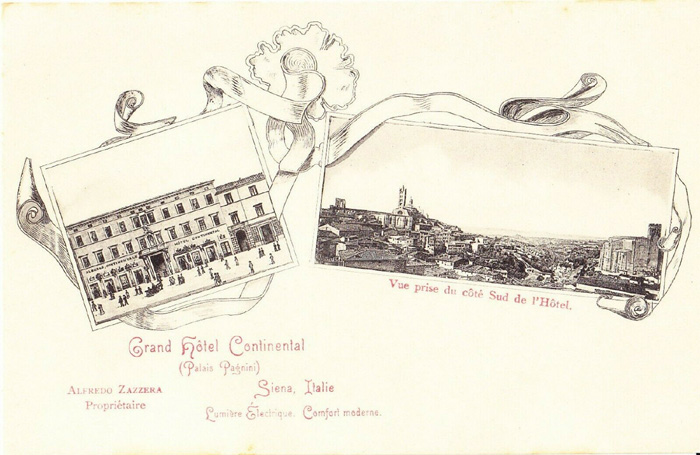 ALBERGO CONTINENTALE
HÔTEL CONTINENTAL
Vue prise du côté Sud de l'Hôtel.
Grand Hôtel Continental
(Palais Pagnini)
Siena, Italie
ALFREDO ZAZZERA
Propriétaire
Lumière Électrique. Comfort moderne.